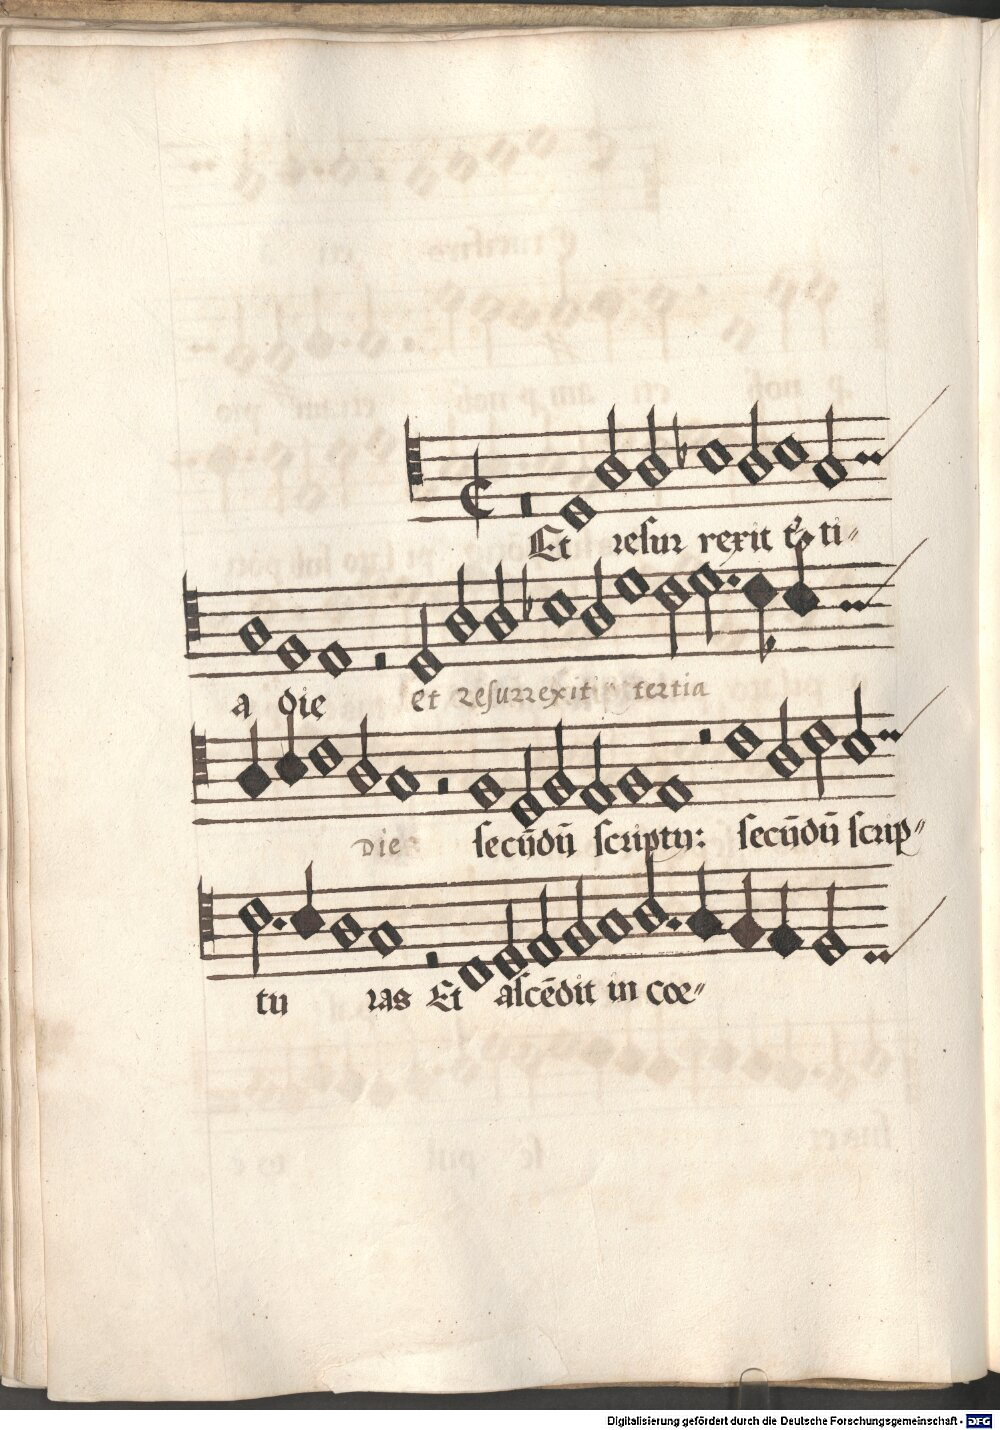 Et resur rexit t͛ ti〃
a die et resurrexit tertia
Die secūdū scriptu: secūdū scrip〃
tu ras Et ascēdit in cœ〃
Digitalisierung gefördert durch die Deutsche Forschungsgemeinschaft - DFG